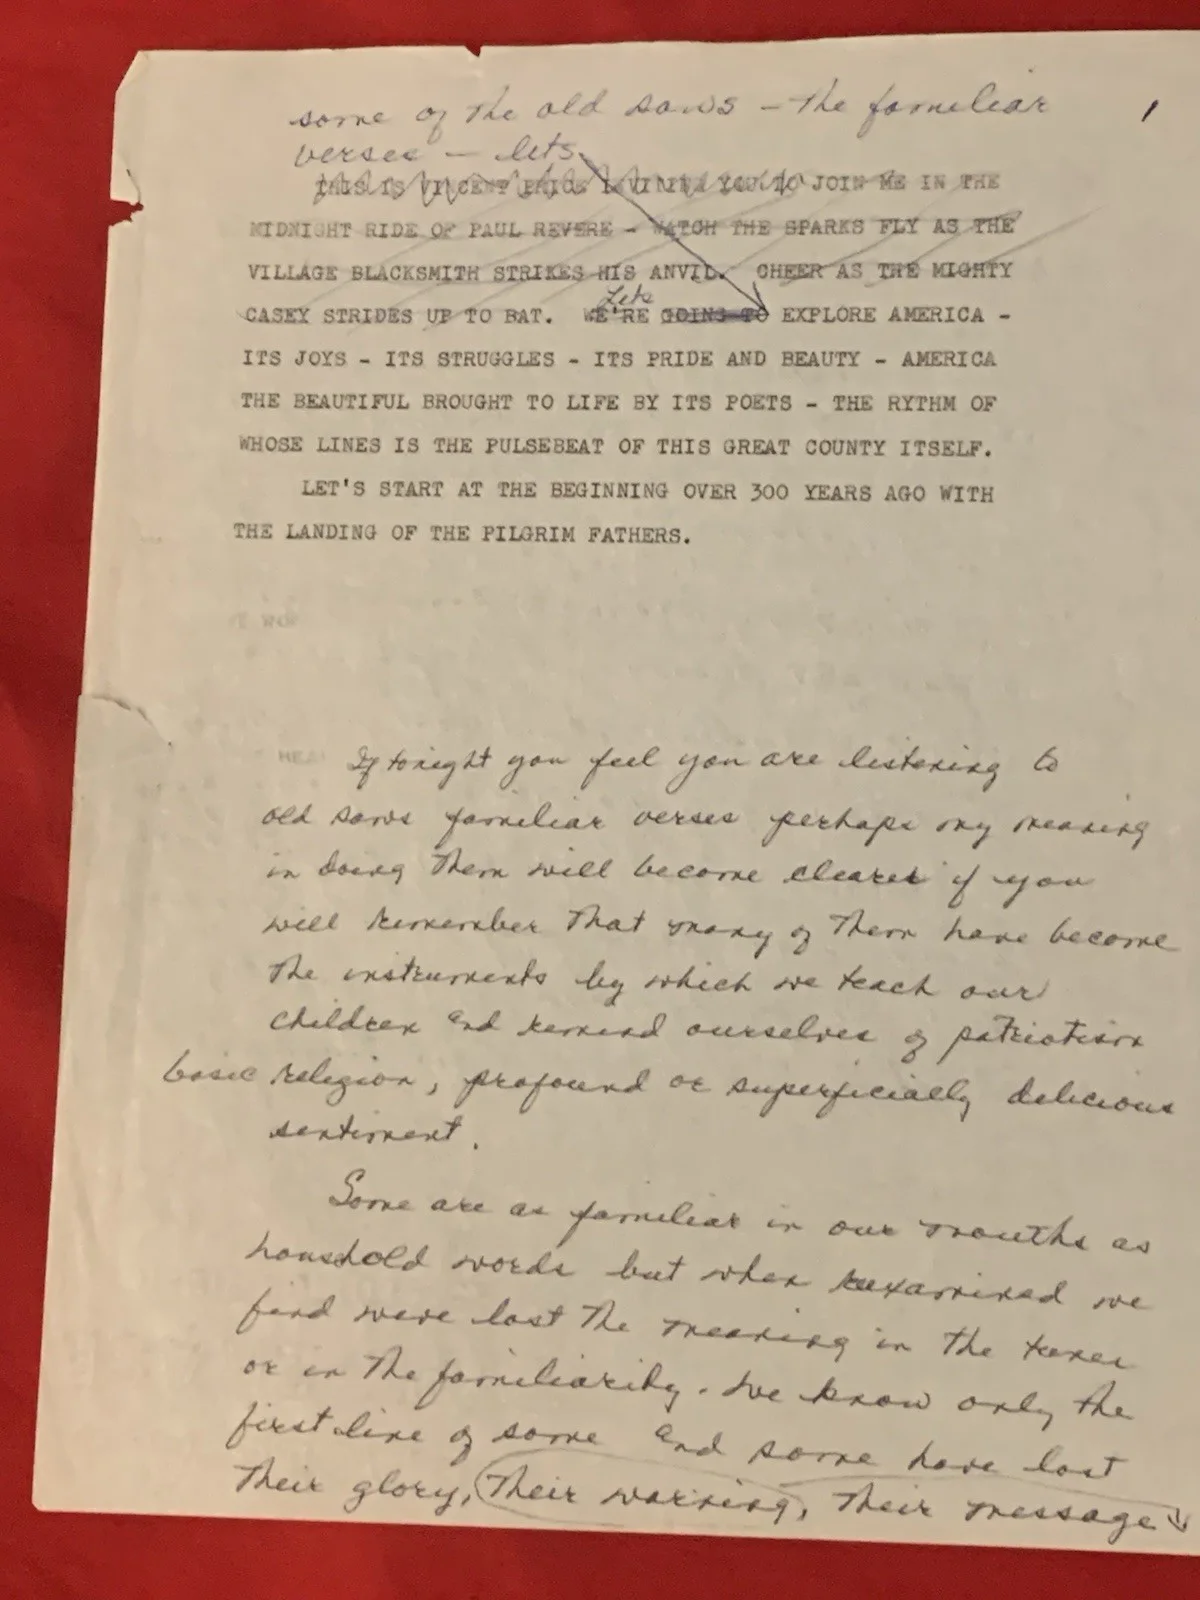 some of the old saws – the familiar
1
verses – lets
THIS IS VINCENT PRICE INVITING YOU TO JOIN ME IN THE
MIDNIGHT RIDE OF PAUL REVERE - WATCH THE SPARKS FLY AS THE
VILLAGE BLACKSMITH STRIKES HIS ANVIL. CHEER AS THE MIGHTY
Lets
CASEY STRIDES UP TO BAT. WE'RE GOING TO EXPLORE AMERICA -
ITS JOYS - ITS STRUGGLES - ITS PRIDE AND BEAUTY - AMERICA
THE BEAUTIFUL BROUGHT TO LIFE BY ITS POETS - THE RYTHM OF
WHOSE LINES IS THE PULSEBEAT OF THIS GREAT COUNTY ITSELF.
LET'S START AT THE BEGINNING OVER 300 YEARS AGO WITH
THE LANDING OF THE PILGRIM FATHERS.
If tonight you feel you are listening to
old saws familiar verses perhaps my meaning
in doing them will become clearer if you
will remember that many of them have become
the instruments by which we teach our
children and remind ourselves of patriotism
basic religion, profound or superficially delicious
sentiment.
Some are as familiar in our mouths as
household words but when reexamined we
find weve lost the meaning in the
or in the familiarity. We know only the
first line of some and some have lost
their glory, their warning, their message